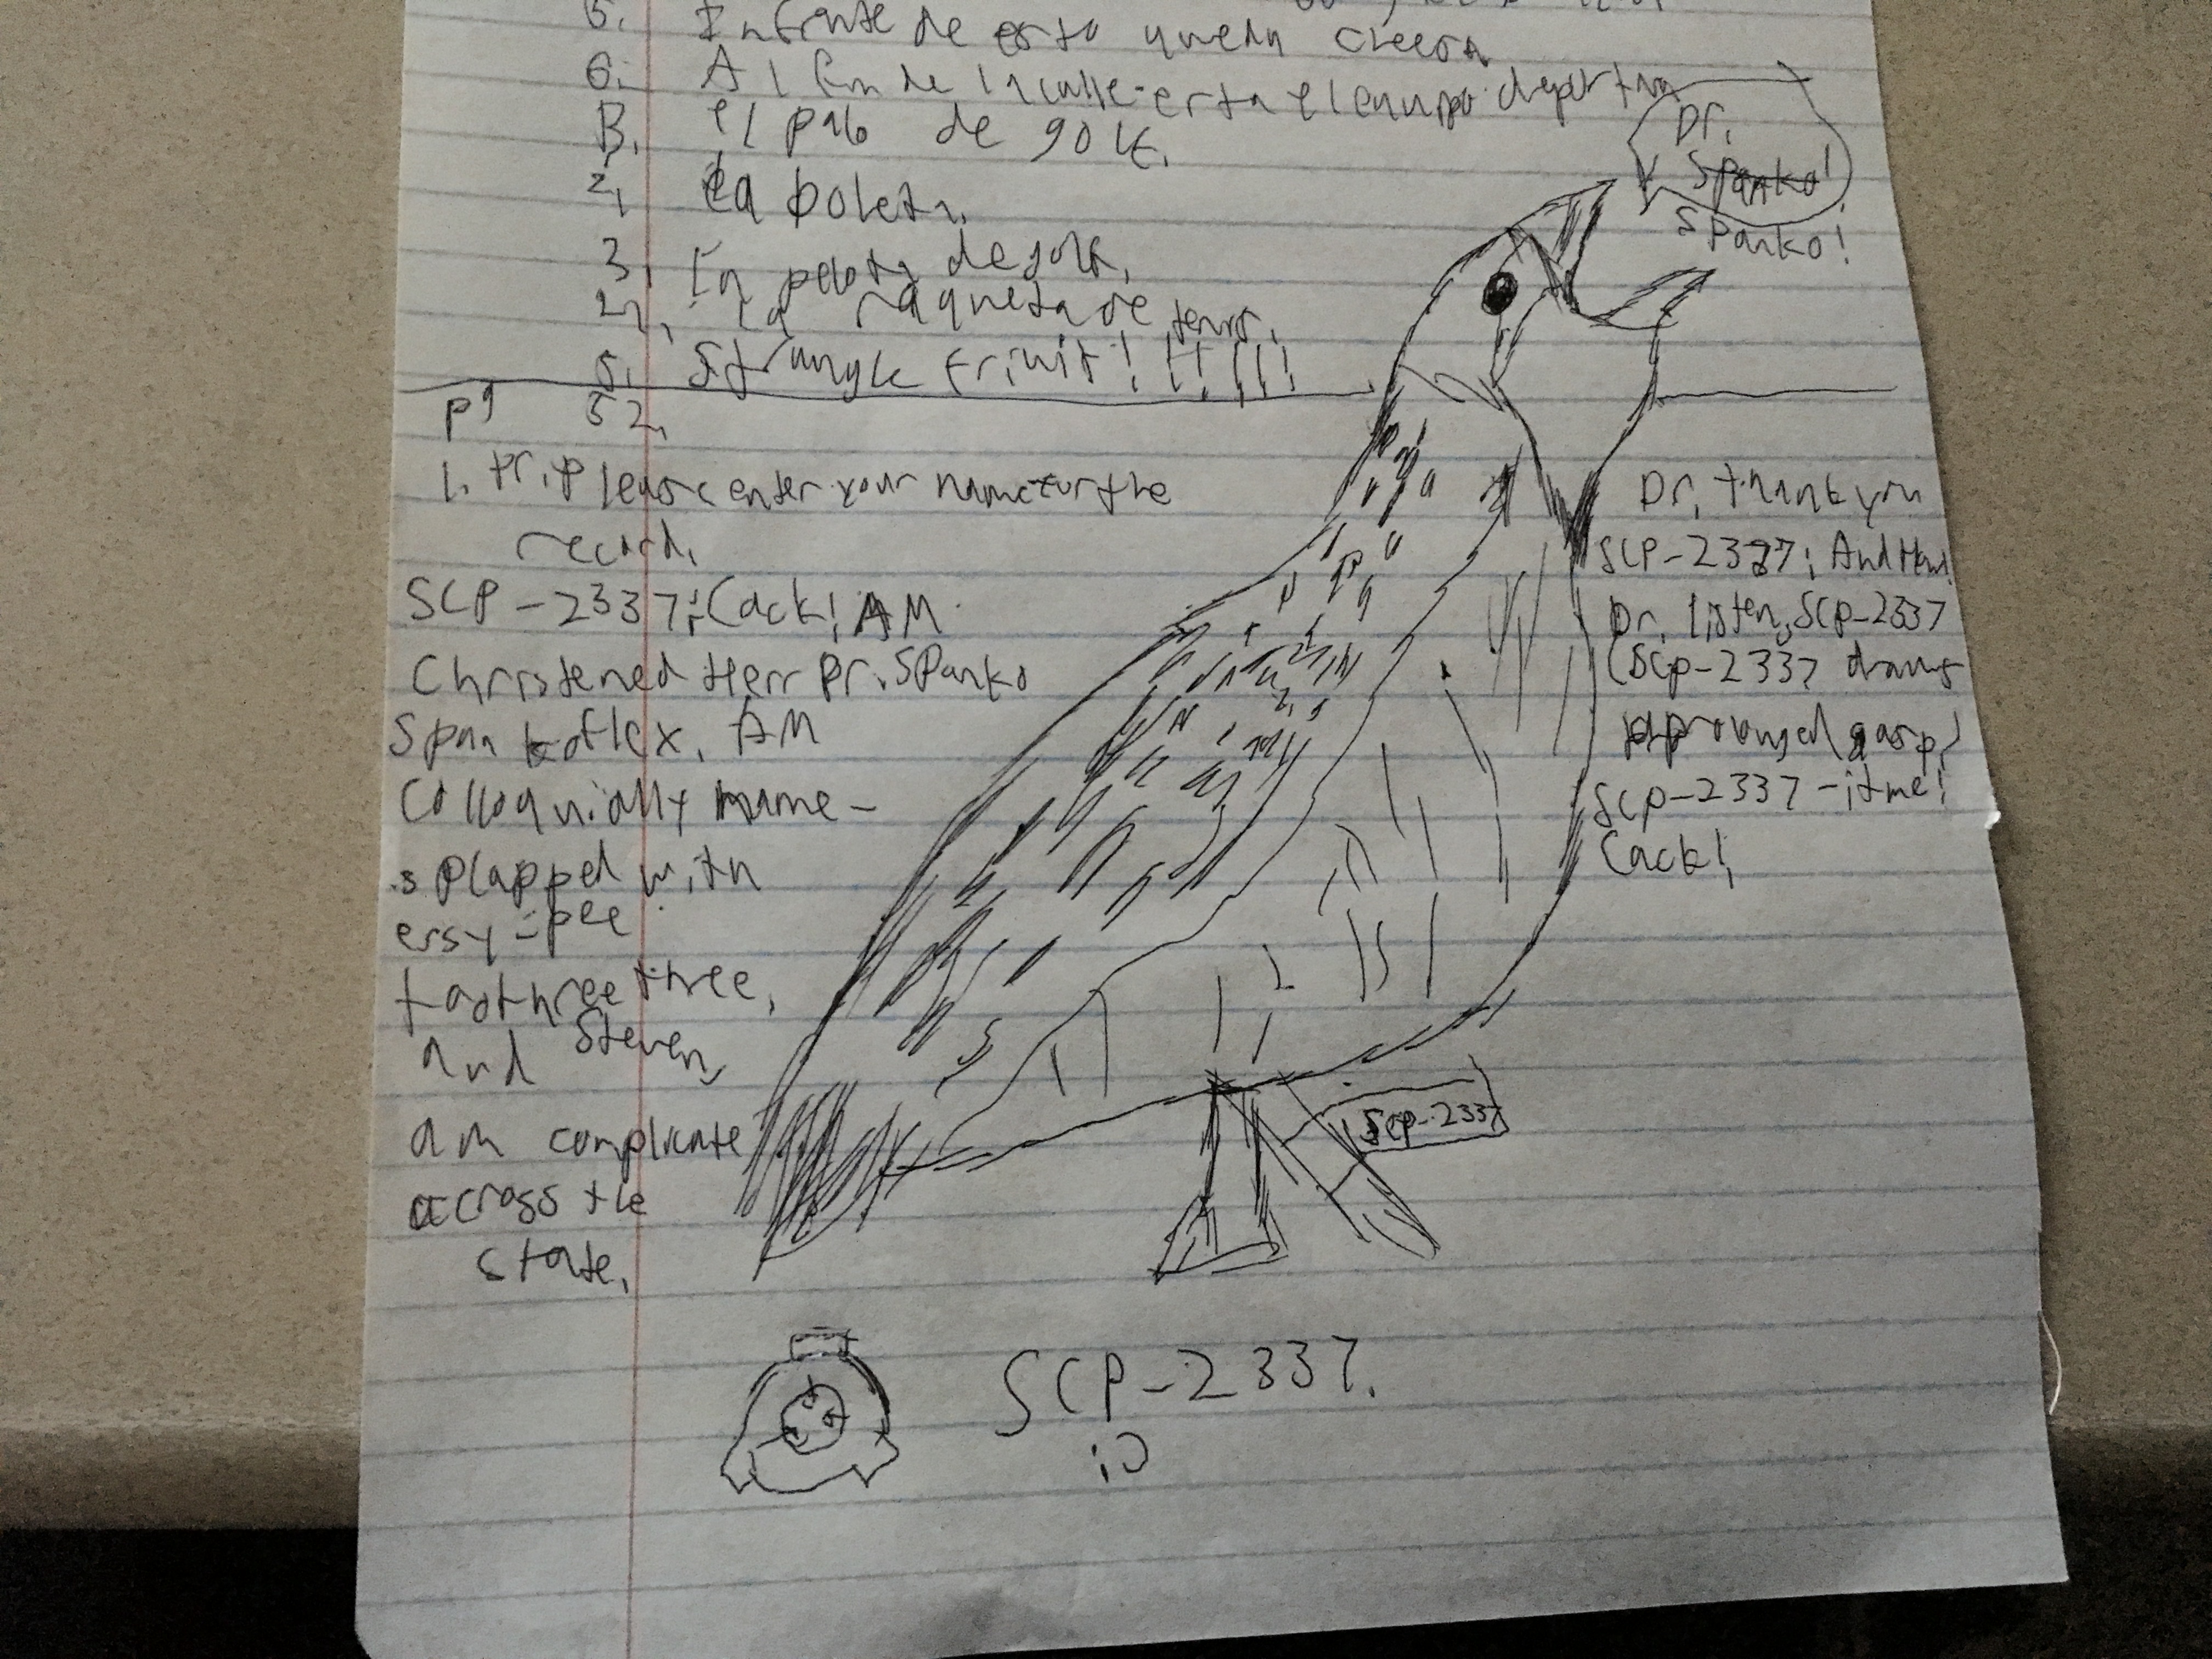 5. Enfrente de esto queda
6. Al fin de la calle esta el equipo
B. el palo de golf.
2. la boleta.
3. La pelota de golf.
la raqueta de tenis.
5. Strangle Friuit! !! !!!
pg 52.
1. Dr. Please enter your name for the
record.
SCP-2337: Cack! AM
Christened Herr Dr. Spanko
Spankoflex. AM
Colloquially name-
splapped with
essy-pee
toothree three,
and Steven,
am complicate
across the
state.
Dr.
Spanko!
Spanko!
Dr. thank you
SCP-2337: And
Dr. listen, SCP-2337
(SCP-2337 draws
prolonged gasp)
SCP-2337 -it me!
Cack!
SCP-2337
SCP-2337.
:)